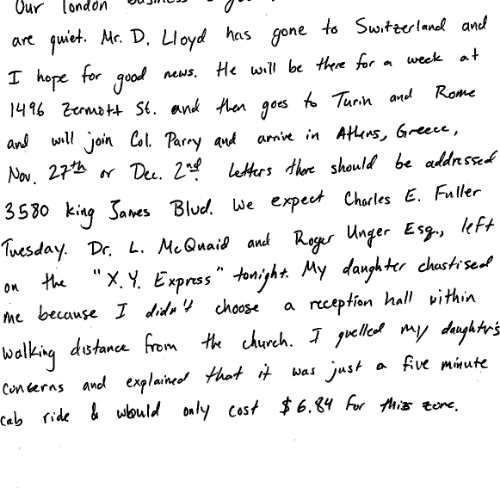 Our london business
are quiet. Mr. D. Lloyd has gone to Switzerland and
I hope for good news. He will be there for a week at
1496 Zermott St. and then goes to Turin and Rome
and will join Col. Parry and arrive in Athens, Greece,
Nov. 27th or Dec. 2nd. Letters there should be addressed
3580 King James Blvd. We expect Charles E. Fuller
Tuesday. Dr. L. McQuaid and Roger Unger Esq., left
on the "X.Y. Express" tonight. My daughter chastised
me because I didn't choose a reception hall within
walking distance from the church. I quelled my daughter's
concerns and explained that it was just a five minute
cab ride & would only cost $6.84 for this zone.